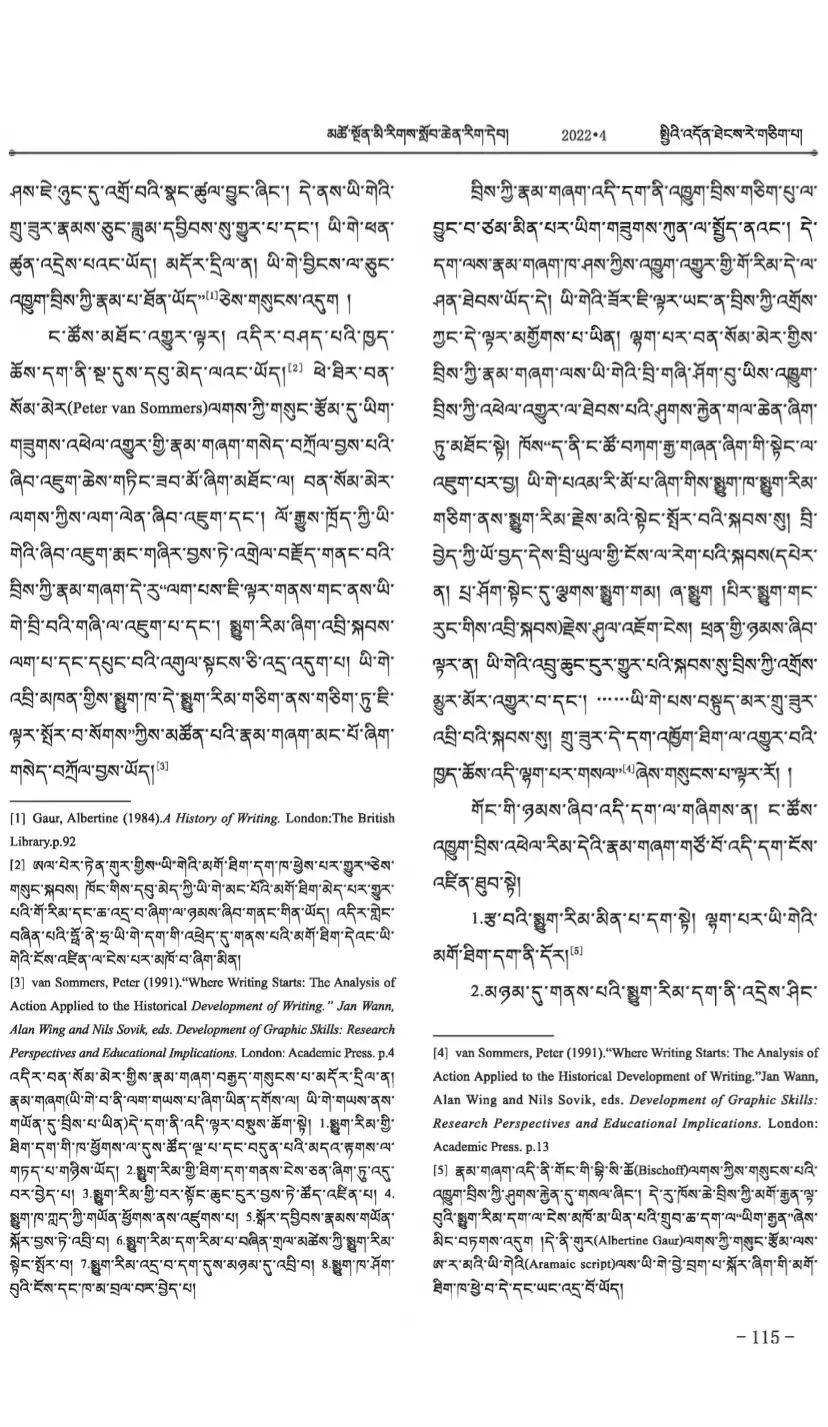 མཚོ་སྔོན་མི་རིགས་སློབ་ཆེན་རིག་དེབ། 2022•4 སྤྱིའི་འདོན་ཐེངས་རེ་གཅིག་པ།
ཤས་ཇེ་ཉུང་དུ་འགྲོ་བའི་སྣང་ཚུལ་བྱུང་ཞིང་། དེ་ནས་ཡི་གེའི་
གྲུ་ཟུར་རྣམས་ཅུང་ཟླུམ་དབྱིབས་སུ་གྱུར་པ་དང་། ཡི་གེ་ཕན་
ཚུན་འདྲེས་པའང་ཡོད། མདོར་དྲིལ་ན། ཡི་གེ་བྱིངས་ལ་ཅུང་
འཁྱུག་བྲིས་ཀྱི་རྣམ་པ་ཐོན་ཡོད”[1]ཅེས་གསུངས་འདུག །
ང་ཚོས་མཐོང་འགྱུར་ལྟར། འདིར་བཤད་པའི་ཁྱད་
ཆོས་དག་ནི་སྔ་དུས་དབུ་མེད་ལའང་ཡོད།[2] ཕེ་ཐིར་བན་
སོམ་མེར(Peter van Sommers)ལགས་ཀྱི་གསུང་རྩོམ་དུ་ཡིག་
གཟུགས་འཕེལ་འགྱུར་གྱི་རྣམ་གཞག་གསེད་བཀྲོལ་བྱས་པའི་
ཞིབ་འཇུག་ཆེས་གཏིང་ཟབ་མོ་ཞིག་མཐོང་ལ། བན་སོམ་མེར་
ལགས་ཀྱིས་ལག་ལེན་ཞིབ་འཇུག་དང་། ལོ་རྒྱུས་ཁྲོད་ཀྱི་ཡི་
གེའི་ཞིབ་འཇུག་རྨང་གཞིར་བྱས་ཏེ་འགྲེལ་བརྗོད་གནང་བའི་
བྲིས་ཀྱི་རྣམ་གཞག་དེ་རུ་“ལག་པས་ཇི་ལྟར་གནས་གང་ནས་ཡི་
གེ་བྲི་བའི་གཞི་ལ་འཇུག་པ་དང་། སྨྱུག་རིམ་ཞིག་འབྲི་སྐབས་
ལག་པ་དང་དཔུང་བའི་འགུལ་སྟངས་ཅི་འདྲ་འདུག་པ། ཡི་གེ་
འབྲི་མཁན་གྱིས་སྨྱུག་ཁ་དེ་སྨྱུག་རིམ་གཅིག་ནས་གཅིག་ཏུ་ཇི་
ལྟར་སྤོར་བ་སོགས”ཀྱིས་མཚོན་པའི་རྣམ་གཞག་མང་པོ་ཞིག་
གསེད་བཀྲོལ་བྱས་ཡོད།[3]
[1] Gaur, Albertine (1984).A History of Writing. London:The British
Library.p.92
[2] ཨལ་པེར་ཏེན་གུར་གྱིས“ཡི་གེའི་མགོ་ཐིག་དག་ཁ་ཕྱེས་པར་གྱུར”ཅེས་
གསུང་སྐབས། ཁོང་གིས་དབུ་མེད་ཀྱི་ཡི་གེ་མང་པོའི་མགོ་ཐིག་མེད་པར་གྱུར་
པའི་གོ་རིམ་དང་ཆ་འདྲ་བ་ཞིག་ལ་ཉམས་ཞིབ་གནང་གིན་ཡོད། འདིར་གླེང་
བཞིན་པའི་ཧྥོ་ནེ་ཧྲ་ཡི་གེ་དག་གི་འཕྲེད་དུ་གནས་པའི་མགོ་ཐིག་དེའང་ཡི་
གེའི་ངོས་འཛིན་ལ་ངེས་པར་མཁོ་བ་ཞིག་མིན།
[3] van Sommers, Peter (1991).“Where Writing Starts: The Analysis of
Action Applied to the Historical Development of Writing." Jan Wann,
Alan Wing and Nils Sovik, eds. Development of Graphic Skills: Research
Perspectives and Educational Implications. London: Academic Press. p.4
འདིར་བན་སོམ་མེར་གྱིས་རྣམ་གཞག་བརྒྱད་གསུངས་པ་མདོར་དྲིལ་ན།
རྣམ་གཞག(ཡི་གེ་བ་ནི་ལག་གཡས་པ་ཞིག་ཡིན་དགོས་ལ། ཡི་གེ་གཡས་ནས་
གཡོན་དུ་བྲིས་པ་ཡིན)དེ་དག་ནི་འདི་ལྟར་བསྡུས་ཆོག་སྟེ། 1.སྨྱུག་རིམ་གྱི་
ཐིག་དག་གི་ཁ་ཕྱོགས་ལ་དུས་ཚོད་ལྔ་པ་དང་བདུན་པའི་མདའ་རྟགས་ལ་
གཏད་པ་གཉིས་ཡོད། 2.སྨྱུག་རིམ་གྱི་ཐིག་དག་གནས་ངེས་ཅན་ཞིག་ཏུ་འདུ་
བར་བྱེད་པ། 3.སྨྱུག་རིམ་གྱི་བར་སྟོང་ཆུང་ངུར་བྱས་ཏེ་ཚོད་འཛིན་པ། 4.
སྨྱུག་ཁ་ཀླད་ཀྱི་གཡོན་ཕྱོགས་ནས་འཛུགས་པ། 5.སྐོར་དབྱིབས་རྣམས་གཡོན་
སྐོར་བྱས་ཏེ་འབྲི་བ། 6.སྨྱུག་རིམ་དག་རིམ་པ་བཞིན་གྲལ་མཚེས་ཀྱི་སྨྱུག་རིམ་
སྟེང་སྤོར་བ། 7.སྨྱུག་རིམ་འདྲ་བ་དག་དུས་མཉམ་དུ་འབྲི་བ། 8.སྨྱུག་ཁ་ཤོག་
བུའི་ངོས་དང་ཁ་མ་བྲལ་བར་བྱེད་པ།
བྲིས་ཀྱི་རྣམ་གཞག་འདི་དག་ནི་འཁྱུག་བྲིས་གཅིག་པུ་ལ་
བྱུང་བ་ཙམ་མིན་པར་ཡིག་གཟུགས་ཀུན་ལ་སྤྱོད་ནའང་། དེ་
དག་ལས་རྣམ་གཞག་ཁ་ཤས་ཀྱིས་འཁྱུག་འགྱུར་གྱི་གོ་རིམ་དེ་ལ་
ཤན་ཐེབས་ཡོད་དེ། ཡི་གེའི་ཟོར་ཇི་ལྟར་ཡང་ན་བྲིས་ཀྱི་འགྲོས་
ཀྱང་དེ་ལྟར་མགྱོགས་པ་ཡིན། ལྷག་པར་བན་སོམ་མེར་གྱིས་
བྲིས་ཀྱི་རྣམ་གཞག་ལས་ཡི་གེའི་བྲི་གཞི་ཤོག་བུ་ཡིས་འཁྱུག་
བྲིས་ཀྱི་འཕེལ་འགྱུར་ལ་ཐེབས་པའི་ཤུགས་རྐྱེན་གལ་ཆེན་ཞིག་
ཏུ་མཐོང་སྟེ། ཁོས“ད་ནི་ང་ཚོ་བཀག་རྒྱ་གཞན་ཞིག་གི་སྟེང་ལ་
འཇུག་པར་བྱ། ཡི་གེ་པའམ་རི་མོ་པ་ཞིག་གིས་སྨྱུག་ཁ་སྨྱུག་རིམ་
གཅིག་ནས་སྨྱུག་རིམ་རྗེས་མའི་སྟེང་སྤོར་བའི་སྐབས་སུ། བྲི་
བྱེད་ཀྱི་ཡོ་བྱད་དེས་བྲི་ཡུལ་གྱི་ངོས་ལ་རེག་པའི་སྐབས(དཔེར་
ན། པྲ་ཤོག་སྟེང་དུ་ལྕགས་སྨྱུག་གམ། ཞ་སྨྱུག །པིར་སྨྱུག་གང་
རུང་གིས་འབྲི་སྐབས)རྗེས་ཤུལ་འཇོག་ངེས། ཕྲན་གྱི་ཉམས་ཞིབ་
ལྟར་ན། ཡི་གེའི་འབྲུ་ཆུང་ངུར་གྱུར་པའི་སྐབས་སུ་བྲིས་ཀྱི་འགྲོས་
མྱུར་མོར་འགྱུར་བ་དང་། ……ཡི་གེ་པས་བསྟུད་མར་གྲུ་ཟུར་
འབྲི་བའི་སྐབས་སུ། གྲུ་ཟུར་དེ་དག་འཁྱོག་ཐིག་ལ་འགྱུར་བའི་
ཁྱད་ཆོས་འདི་ལྷག་པར་གསལ”[4]ཞེས་གསུངས་པ་ལྟར་རོ། །
གོང་གི་ཉམས་ཞིབ་འདི་དག་ལ་གཞིགས་ན། ང་ཚོས་
འཁྱུག་བྲིས་འཕེལ་རིམ་དེའི་རྣམ་གཞག་གཙོ་བོ་འདི་དག་ངོས་
འཛིན་ཐུབ་སྟེ།
1.རྩ་བའི་སྨྱུག་རིམ་མིན་པ་དག་སྟེ། ལྷག་པར་ཡི་གེའི་
མགོ་ཐིག་དག་ནི་དོར།[5]
2.མཉམ་དུ་གནས་པའི་སྨྱུག་རིམ་དག་ནི་འདྲེས་ཤིང་
[4] van Sommers, Peter (1991).“Where Writing Starts: The Analysis of
Action Applied to the Historical Development of Writing.”Jan Wann,
Alan Wing and Nils Sovik, eds. Development of Graphic Skills:
Research Perspectives and Educational Implications. London:
Academic Press. p.13
[5] རྣམ་གཞག་འདི་ནི་གོང་གི་བྷི་སི་ཆོ(Bischoff)ལགས་ཀྱིས་གསུངས་པའི་
འཁྱུག་བྲིས་ཀྱི་ཤུགས་རྐྱེན་དུ་གསལ་ཞིང་། དེ་རུ་ཁོས་ཆེ་བྲིས་ཀྱི་མགོ་རྒྱན་ལྟ་
བུའི་སྨྱུག་རིམ་དག་ལ་ངེས་མཁོ་མ་ཡིན་པའི་གྲུབ་ཆ་དག་ལ“ཡིག་རྒྱན”ཞེས་
མིང་བཏགས་འདུག །དེ་ནི་གུར(Albertine Gaur)ལགས་ཀྱི་གསུང་རྩོམ་ལས་
ཨ་ར་མའི་ཡི་གེའི(Aramaic script)ལས་ཡི་གེ་བྱེ་བྲག་པ་སྐོར་ཞིག་གི་མགོ་
ཐིག་ཁ་ཕྱེ་བ་དེ་དང་ཡང་འདྲ་བོ་ཡོད།
－115－